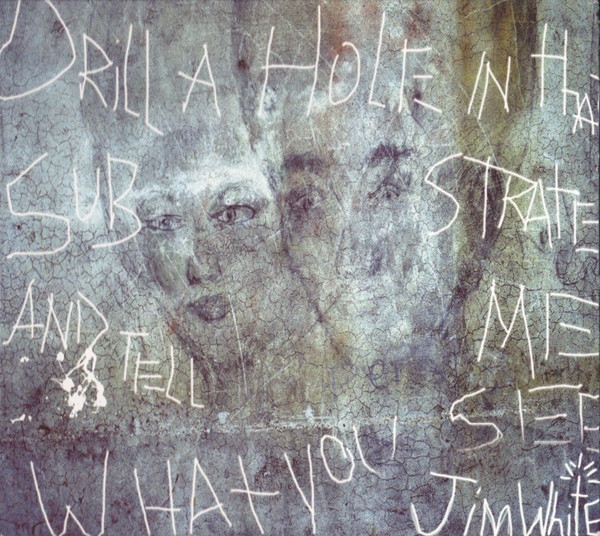 DRILL A HOLE IN THA
SUB STRATE
AND TELL ME
WHAT YOU SEE
Jim White